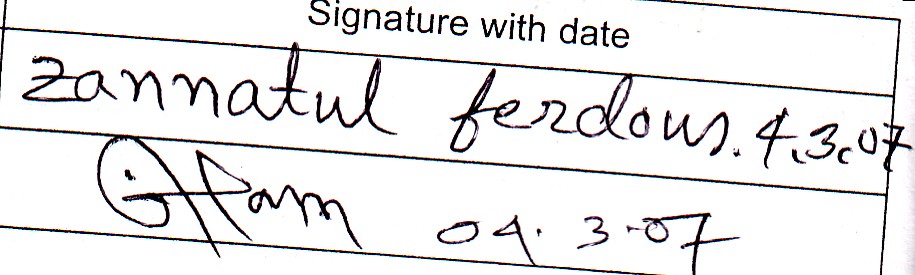 Signature with date
Zannatul ferdous. 4.3.07
04.3.07